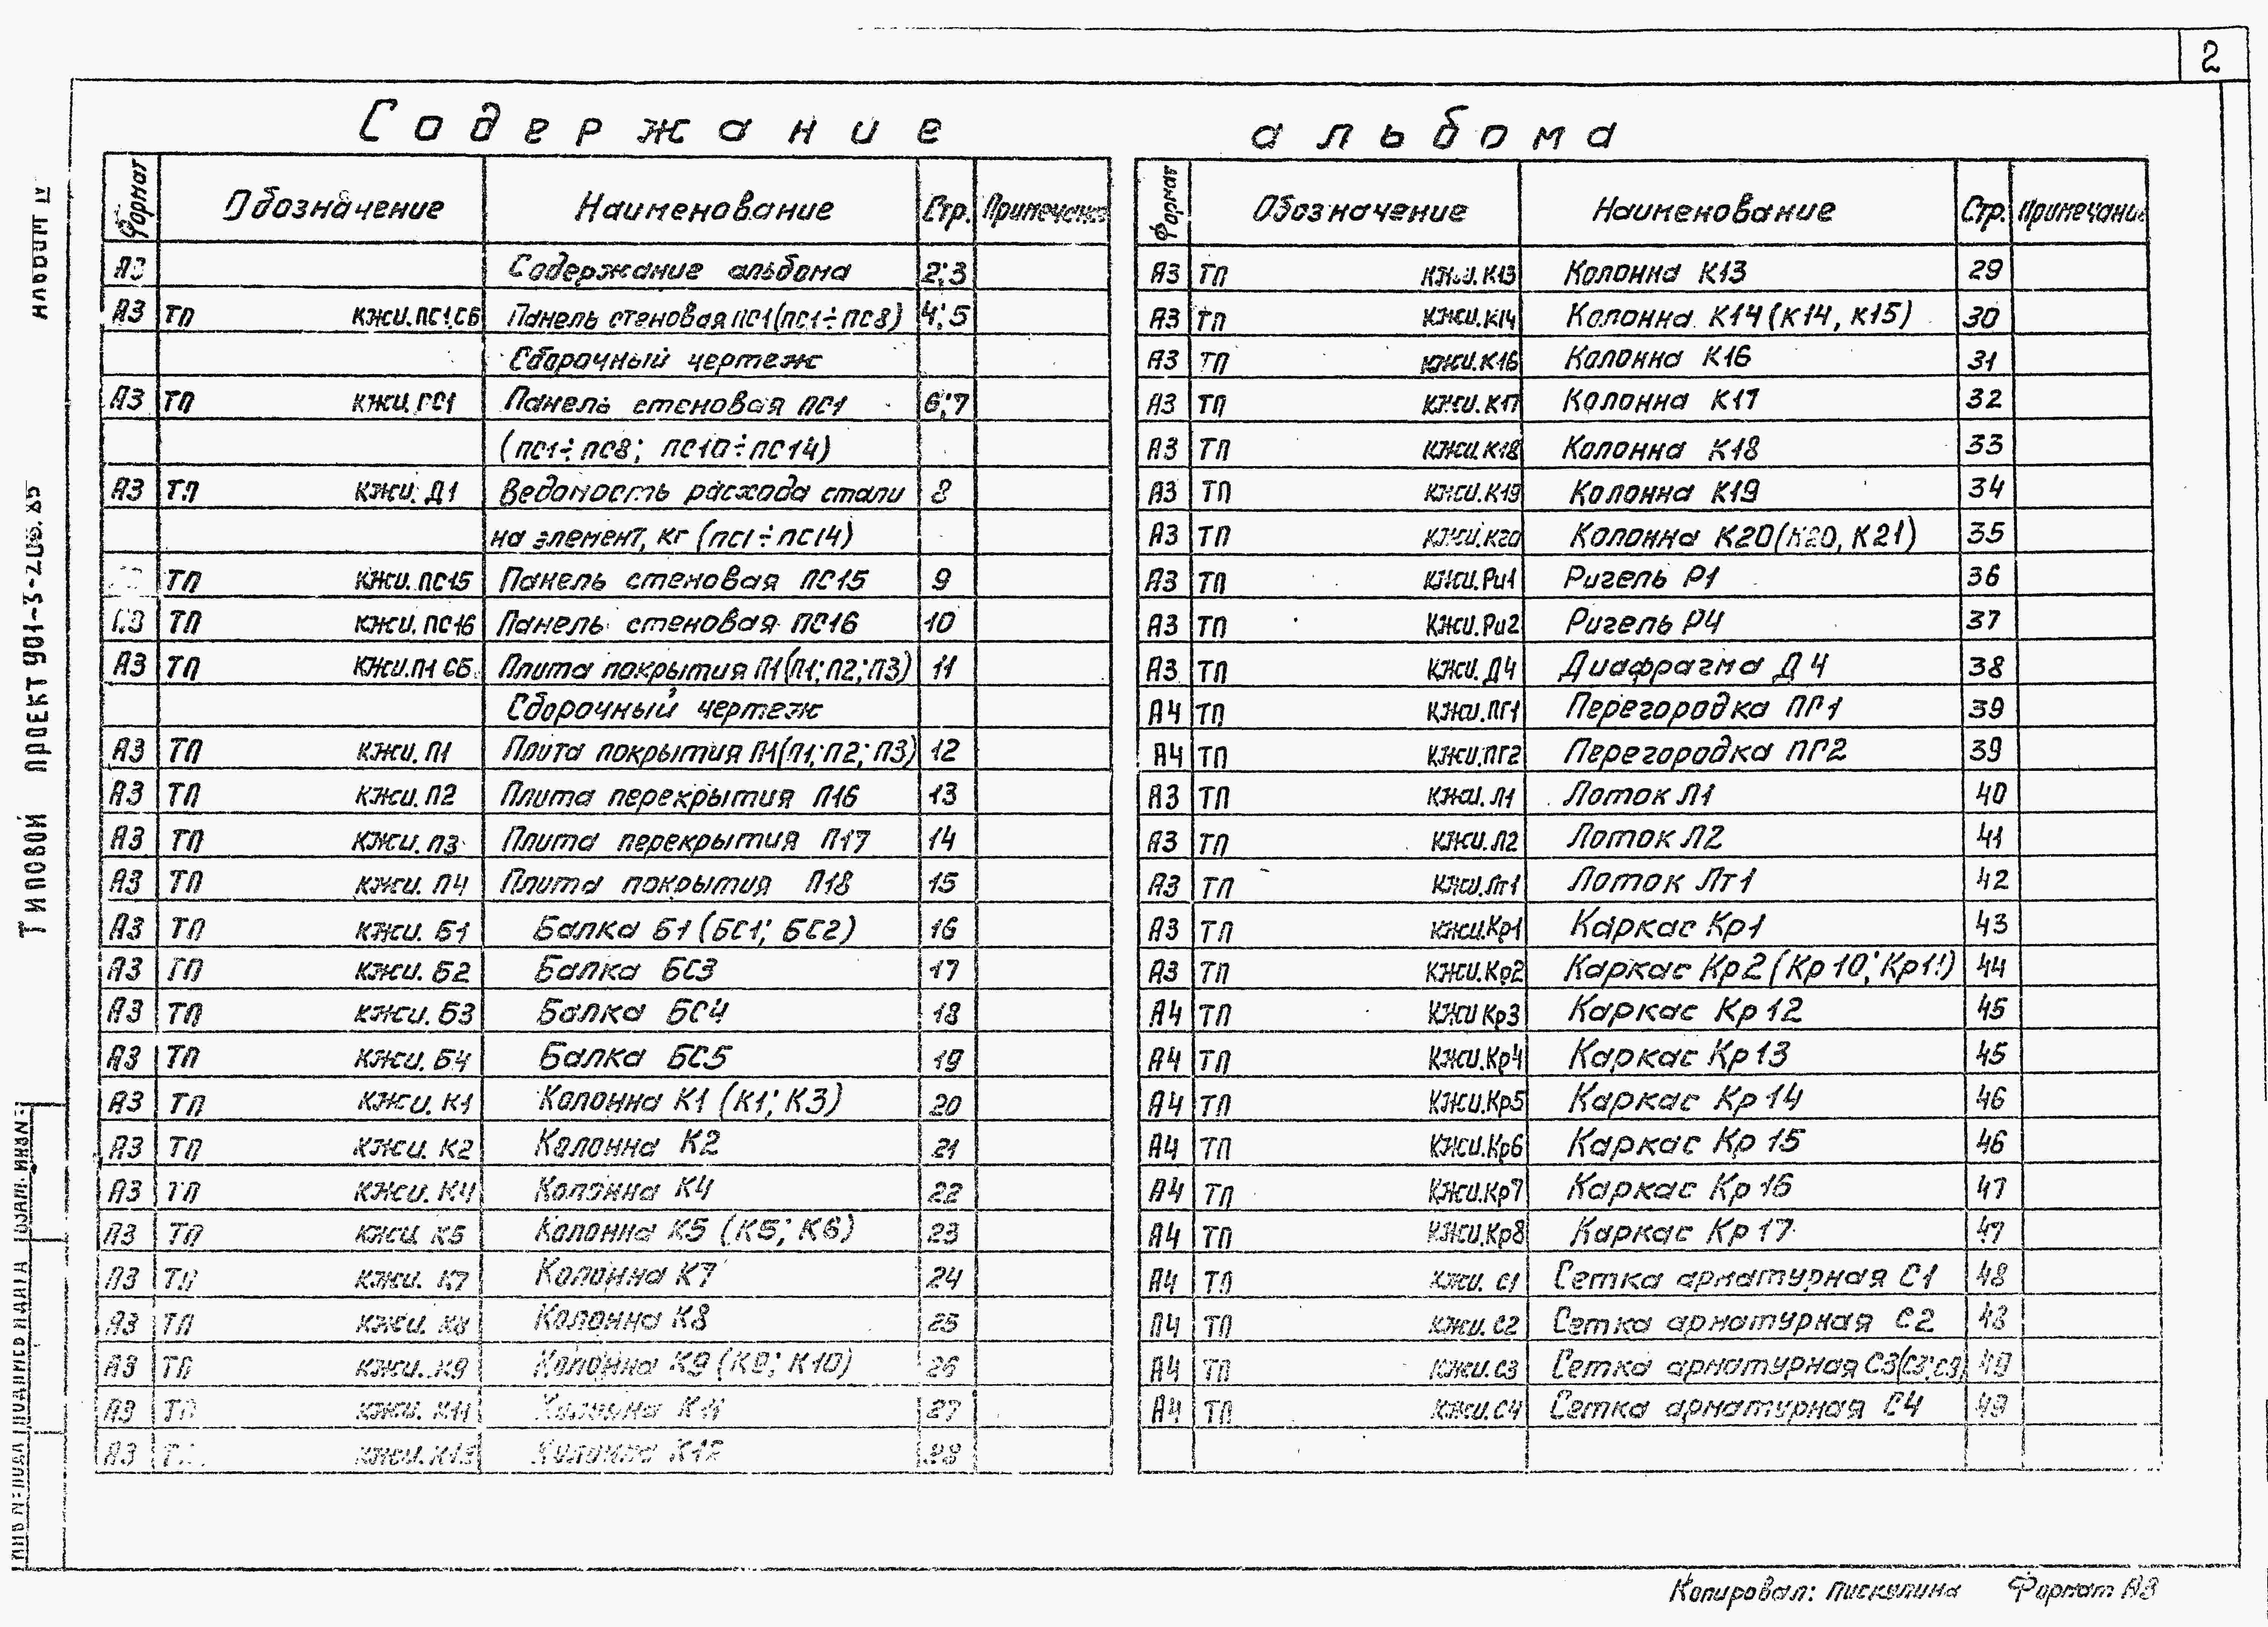 2
Содержание альбома
Формат Обозначение Наименование Стр. Примечание
А3 Содержание альбома 2;3
А3 ТП КЖИ.ПС1.СБ Панель стеновая ПС1(ПС1÷ПС8) 4;5
Сборочный чертеж
А3 ТП КЖИ.ПС1 Панель стеновая ПС1 6;7
(ПС1÷ПС8; ПС10÷ПС14)
А3 ТП КЖИ.Д1 Ведомость расхода стали 8
на элемент, кг (ПС1÷ПС14)
ТП КЖИ.ПС15 Панель стеновая ПС15 9
А3 ТП КЖИ.ПС16 Панель стеновая ПС16 10
А3 ТП КЖИ.П1 СБ Плита покрытия П1(П1;П2;П3) 11
Сборочный чертеж
А3 ТП КЖИ.П1 Плита покрытия П1(П1;П2;П3) 12
А3 ТП КЖИ.П2 Плита перекрытия П16 13
А3 ТП КЖИ.П3 Плита перекрытия П17 14
А3 ТП КЖИ.П4 Плита покрытия П18 15
А3 ТП КЖИ.Б1 Балка Б1 (БС1; БС2) 16
А3 ТП КЖИ.Б2 Балка БС3 17
А3 ТП КЖИ.Б3 Балка БС4 18
А3 ТП КЖИ.Б4 Балка БС5 19
А3 ТП КЖИ.К1 Колонна К1 (К1; К3) 20
А3 ТП КЖИ.К2 Колонна К2 21
А3 ТП КЖИ.К4 Колонна К4 22
А3 ТП КЖИ К5 Колонна К5 (К5; К6) 23
А3 ТП КЖИ.К7 Колонна К7 24
А3 ТП КЖИ.К8 Колонна К8 25
А3 ТП КЖИ.К9 Колонна К9 (К9; К10) 26
А3 ТП КЖИ.К11 Колонна К11 27
А3 КЖИ.К12 Колонна К12 28
Формат Обозначение Наименование Стр. Примечание
А3 ТП КЖИ.К13 Колонна К13 29
А3 ТП КЖИ.К14 Колонна К14 (К14, К15) 30
А3 ТП КЖИ.К16 Колонна К16 31
А3 ТП КЖИ.К17 Колонна К17 32
А3 ТП КЖИ.К18 Колонна К18 33
А3 ТП КЖИ.К19 Колонна К19 34
А3 ТП КЖИ.К20 Колонна К20(К20, К21) 35
А3 ТП КЖИ.Ри1 Ригель Р1 36
А3 ТП КЖИ.Ри2 Ригель Р4 37
А3 ТП КЖИ.Д4 Диафрагма Д4 38
А4 ТП КЖИ.ПГ1 Перегородка ПГ1 39
А4 ТП КЖИ.ПГ2 Перегородка ПГ2 39
А3 ТП КЖИ.Л1 Лоток Л1 40
А3 ТП КЖИ.Л2 Лоток Л2 41
А3 ТП КЖИ.Лт1 Лоток Лт1 42
А3 ТП КЖИ.Кр1 Каркас Кр1 43
А3 ТП КЖИ.Кр2 Каркас Кр2 (Кр10; Кр11) 44
А4 ТП КЖИ Кр3 Каркас Кр12 45
А4 ТП КЖИ.Кр4 Каркас Кр13 45
А4 ТП КЖИ.Кр5 Каркас Кр14 46
А4 ТП КЖИ.Кр6 Каркас Кр15 46
А4 ТП КЖИ.Кр7 Каркас Кр16 47
А4 ТП КЖИ.Кр8 Каркас Кр17 47
А4 ТП КЖИ.С1 Сетка арматурная С1 48
А4 ТП КЖИ.С2 Сетка арматурная С2 48
А4 ТП КЖИ.С3 Сетка арматурная С3 49
А4 ТП КЖИ.С4 Сетка арматурная С4 49
Альбом IV
Типовой проект 901-3-206.85
Инв.N:подл. Подпись и дата Взам. инв.N:
Копировал: Пискулина Формат А3